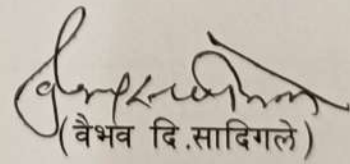 (वैभव दि.सादिगले)